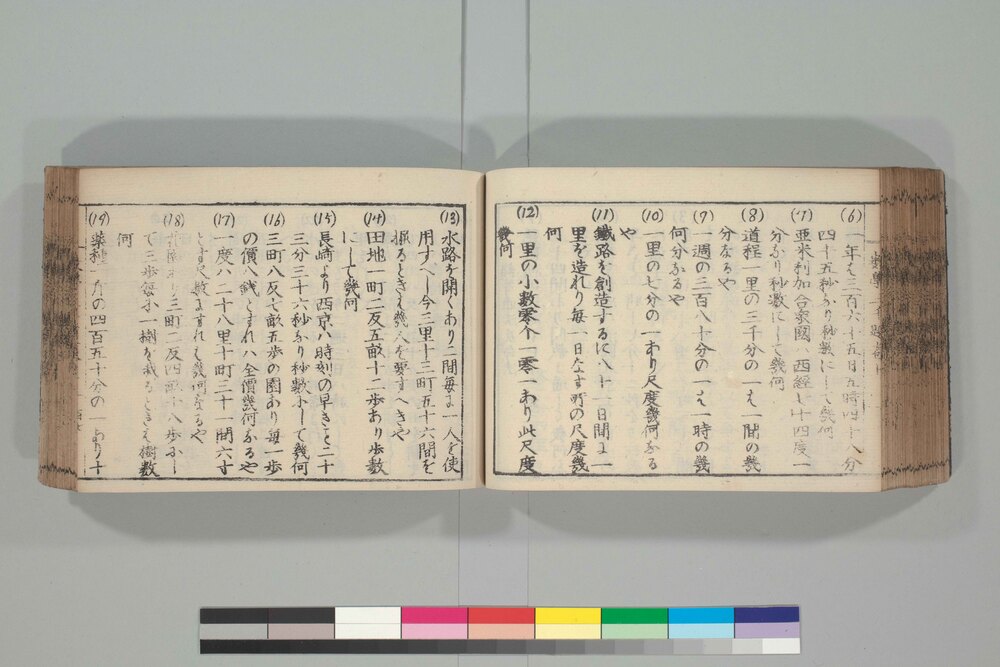 (6)
一年は三百六十五日五時四十八分
四十五秒なり秒数にして幾何
(7)
亜米利加合衆國ハ西経七十四度一
分なり秒数にして幾何
(8)
道程一里の三千分の一は一間の幾
分なるや
(9)
一週の三百八十分の一は一時の幾
何分なるや
(10)
一里の七分の一あり尺度幾何なる
や
(11)
鐵路を創造するに八十一日間に一
里を造れり毎一日なす所の尺度幾
何
(12)
一里の小数零个一零一あり此尺度
幾何
(13)
水路を開くあり二間毎に一人を使
用すべし今二里十三町五十六間を
掘るときは幾人を要すへきや
(14)
田地一町二反五畝十二歩あり歩数
にして幾何
(15)
長崎より西京ハ時刻の早きこと二十
三分三十六秒なり秒数にして幾何
(16)
三町八反七畝五歩の園あり毎一歩
の價八銭とすれハ全價幾何なるや
(17)
一度ハ二十八里十町三十一間六寸
とす尺数にすれは幾何なるや
(18)
三町二反四畝十八歩にし
て三歩毎に一樹を栽るときは樹数
何
(19)
薬種一斤の四百五十分の一あり十